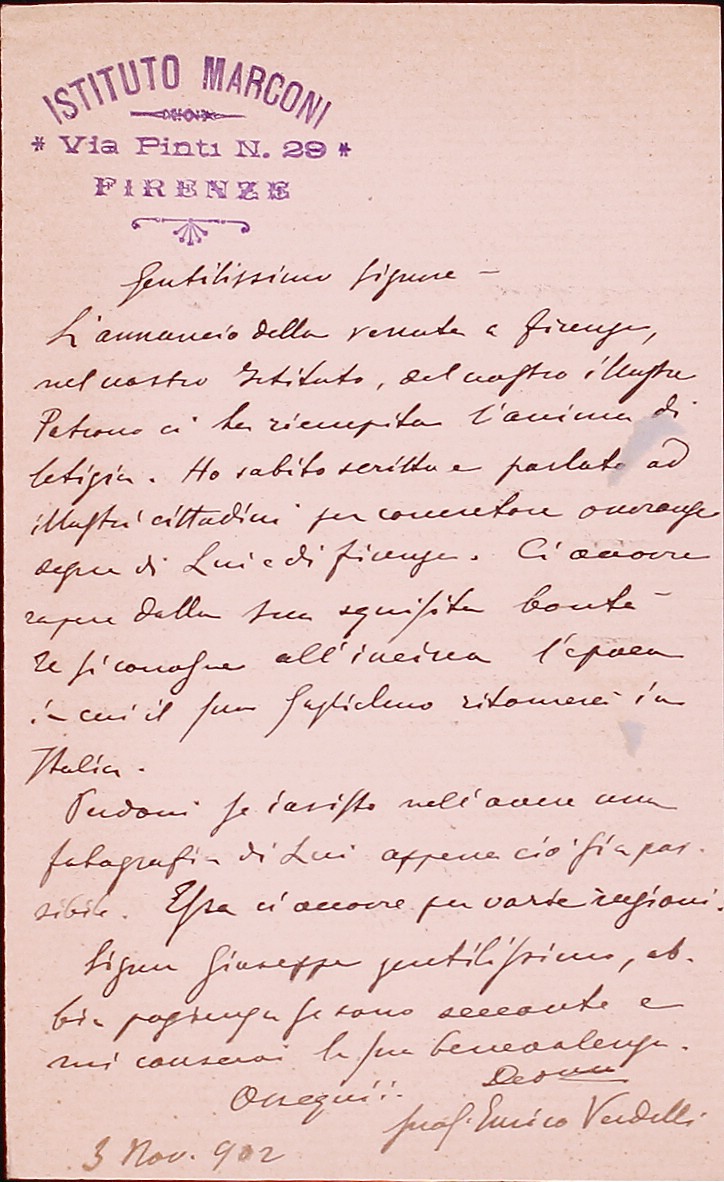 ISTITUTO MARCONI
* Via Pinti N. 29 *
FIRENZE
Gentilissimo Signore –
L'annuncio della venuta a Firenze,
nel nostro Istituto, del nostro illustre
Patrono ci ha riempita l'anima di
letizia. Ho subito scritto e parlato ad
illustri cittadini per concretare onoranze
degne di Lui e di Firenze. Ci occorre
sapere dalla sua squisita bontà
se si conosce all'incirca l'epoca
in cui il suo Guglielmo ritornerà in
Italia.
Perdoni se insisto nell'avere una
fotografia di Lui appena ciò sia pos-
sibile. Essa ci occorre per varie ragioni.
Signor Giuseppe gentilissimo, ab-
bia pazienza se sono seccante e
mi conservi la sua benevolenza.
Ossequii. Devmo
prof. Enrico Verdelli
3 Nov. 902